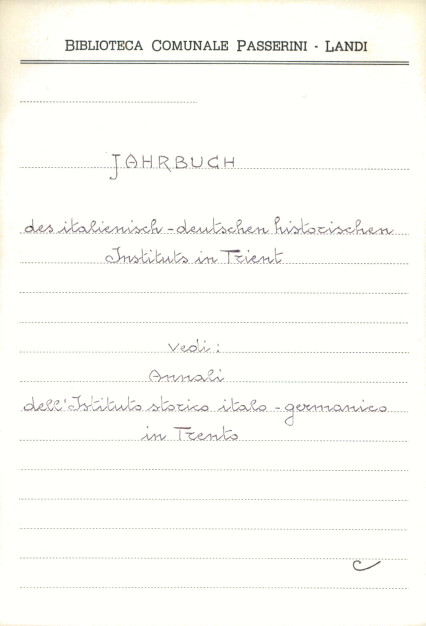 BIBLIOTECA COMUNALE PASSERINI - LANDI
JAHRBUCH
des italienisch - deutschen historischen
Instituts in Trient
vedi :
Annali
dell'Istituto storico italo - germanico
in Trento
C